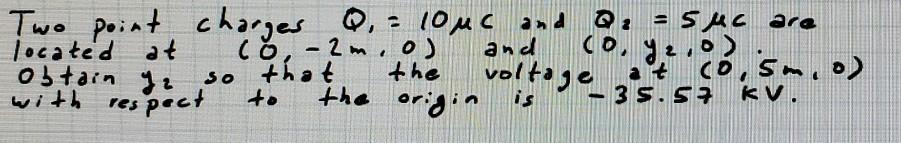 Two point charges Q₁ = 10 μC and Q₂ = 5 μC are
located at (0, -2m, 0) and (0, y₂, 0).
Obtain y₂ so that the voltage at (0, 5m, 0)
with respect to the origin is -35.57 KV.